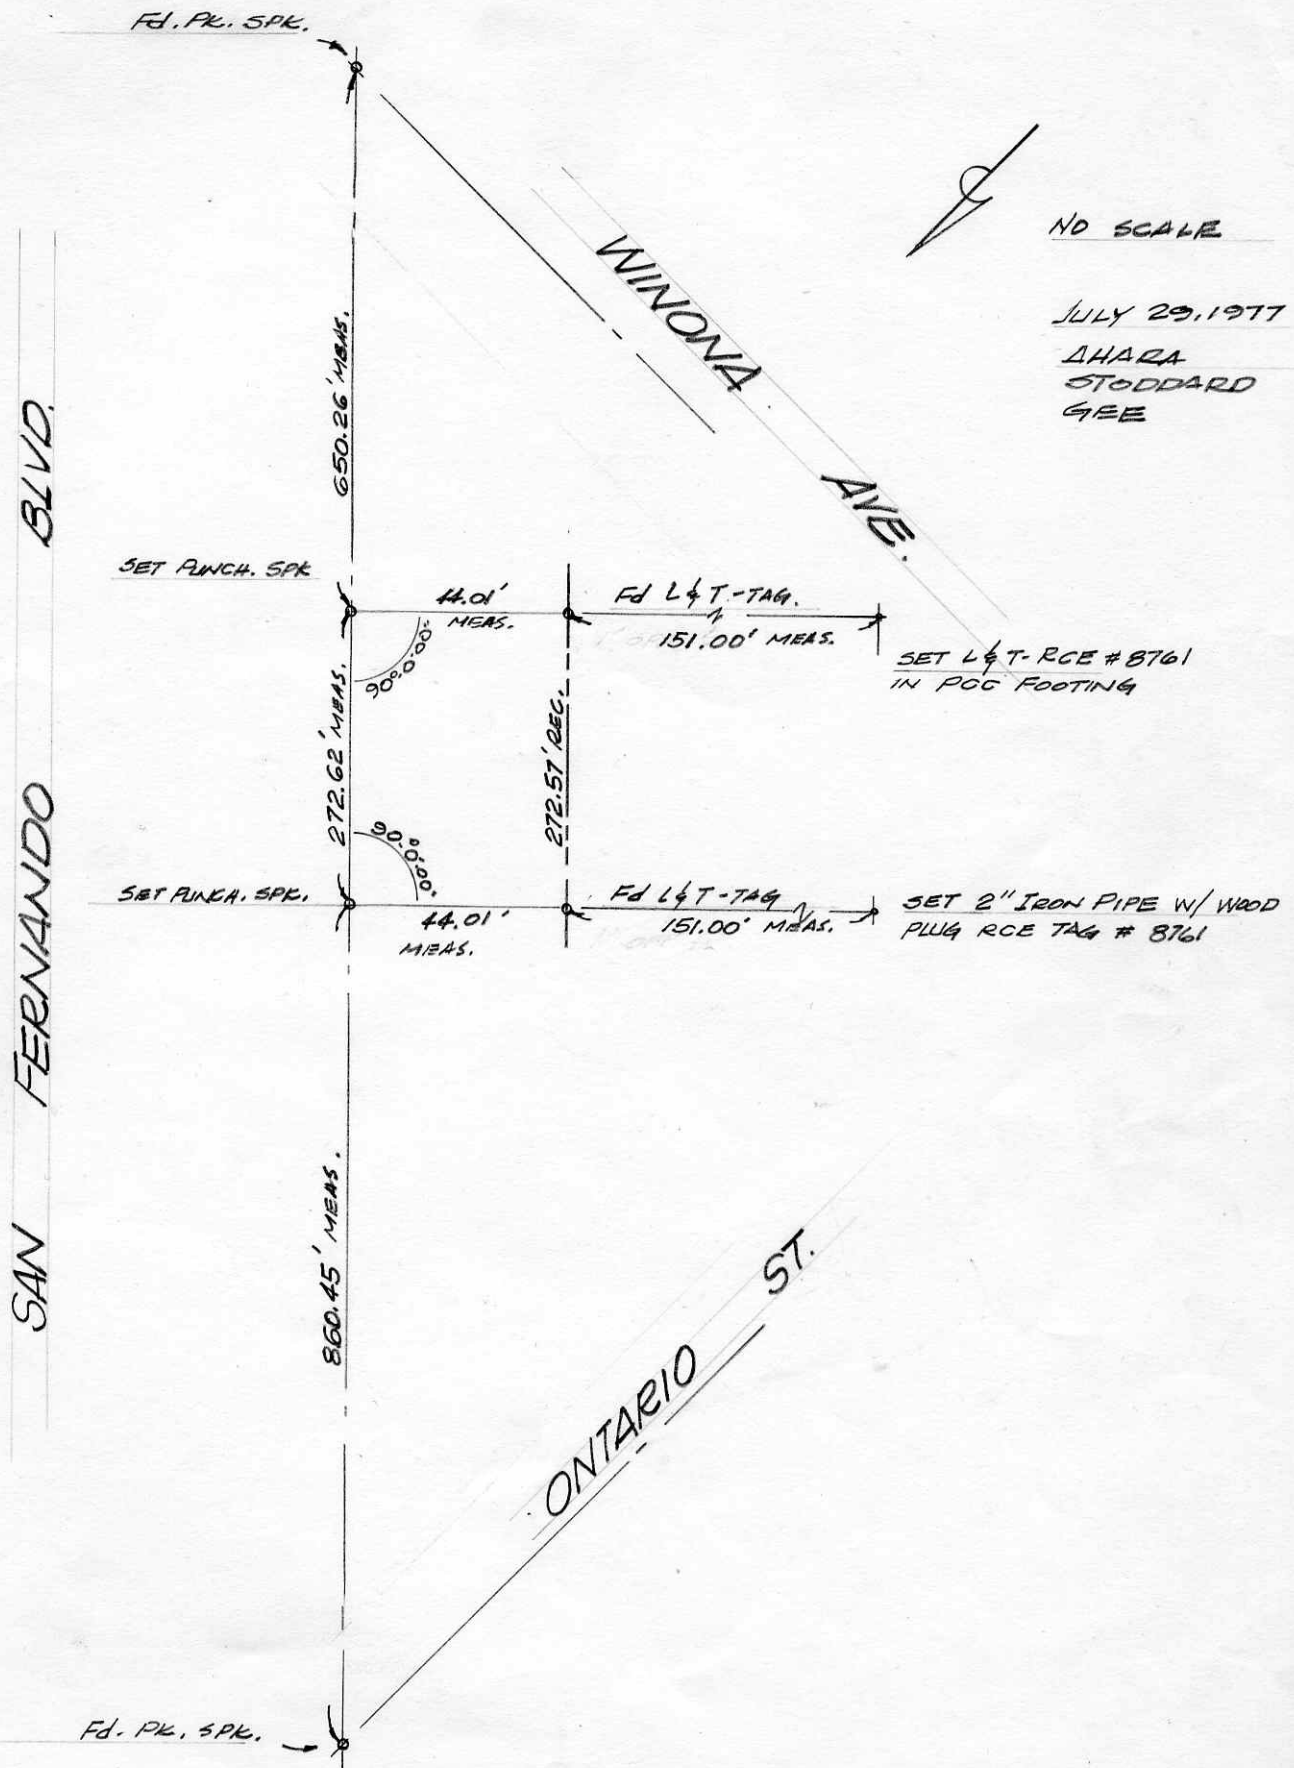 Fd. PK. SPK.
NO SCALE
JULY 29, 1977
AHARA
STODDARD
GEE
WINONA AVE.
650.26' MEAS.
SAN FERNANDO BLVD.
SET PUNCH. SPK
44.01'
MEAS.
Fd L & T - TAG.
151.00' MEAS.
SET L & T - RCE # 8761
IN PCC FOOTING
90°-0'-00"
272.62' MEAS.
272.57' REC.
90°-0'-00"
SET PUNCH. SPK.
44.01'
MEAS.
Fd L & T - TAG
151.00' MEAS.
SET 2" IRON PIPE W/ WOOD
PLUG RCE TAG # 8761
860.45' MEAS.
ONTARIO ST.
Fd. PK. SPK.